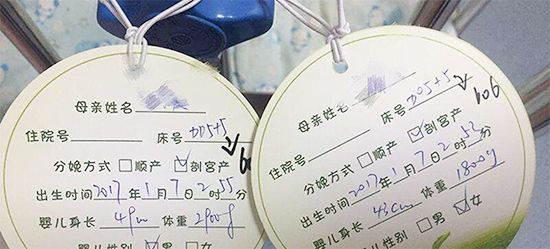 母亲姓名
住院号 床号 D05+5
分娩方式 □顺产 ☑剖宫产
出生时间2017年1月7日2时55分
婴儿身长 体重 2900g
婴儿性别 ☑男 □女
母亲姓名
住院号 床号 D05+5
606
分娩方式 □顺产 ☑剖宫产
出生时间2017年1月7日2时52分
婴儿身长 43cm 体重 1800g
婴儿性别 □男 ☑女